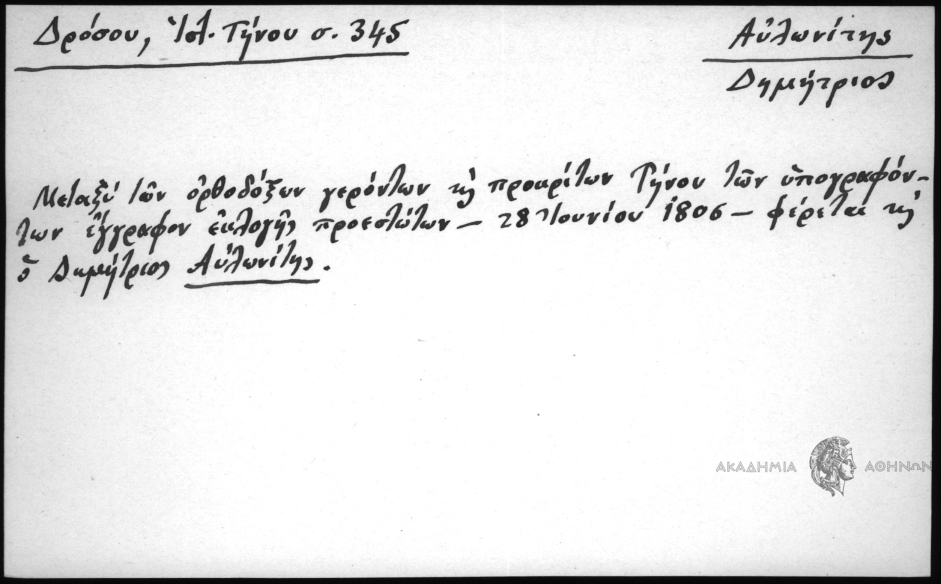 Δρόσου, Ἱστ. Τήνου σ. 345
Αὐλωνίτης
Δημήτριος
Μεταξὺ τῶν ὀρθοδόξων γερόντων κὴ προκρίτων Τήνου τῶν ὑπογραφόν-
των ἔγγραφον ἐκλογῆς προεστώτων – 28 Ἰουνίου 1806 – φέρεται κὴ
ὁ Δημήτριος Αὐλωνίτης.
ΑΚΑΔΗΜΙΑ ΑΘΗΝΩΝ